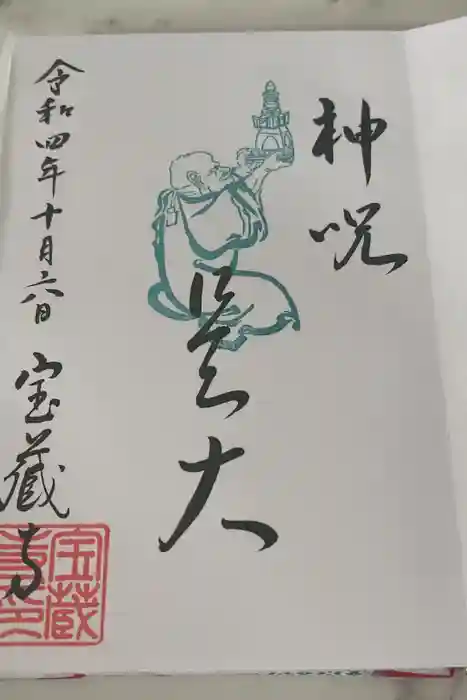 神呪
是大
令和四年十月六日 宝蔵寺
宝蔵
寺印